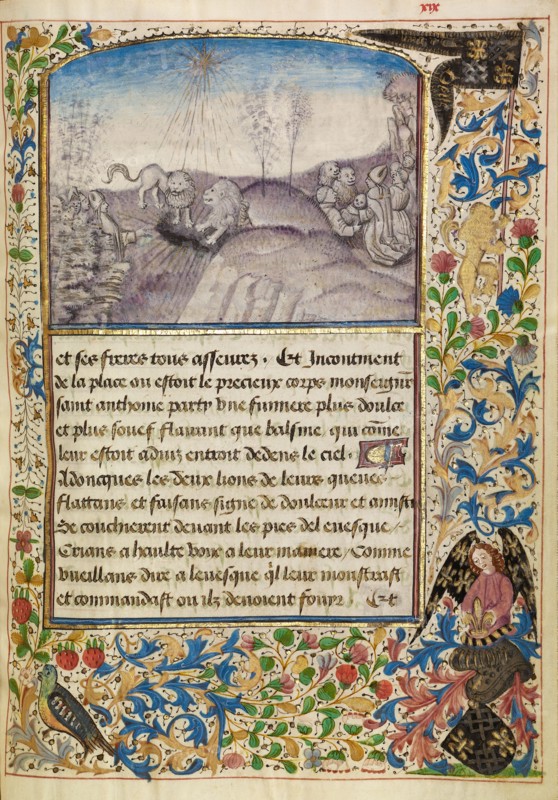 xix
et ses freres tous asseurez . Et Incontinent
de la place ou estoit le precieux corps monseigneur
saint anthoine party vne fumiere plus doulce
et plus souef flairant que balsme, qui come
leur estoit aduiz entroit dedens le ciel.
Adoncques les deux lions de leurs queues
flattans et faisans signe de douleur et amistie
Se coucherent deuant les pies del euesque
Crians a haulte voix a leur maniere / Comme
vueillans dire a leuesque qil leur monstrast
et commandast ou ilz deuoient fouyr / Et